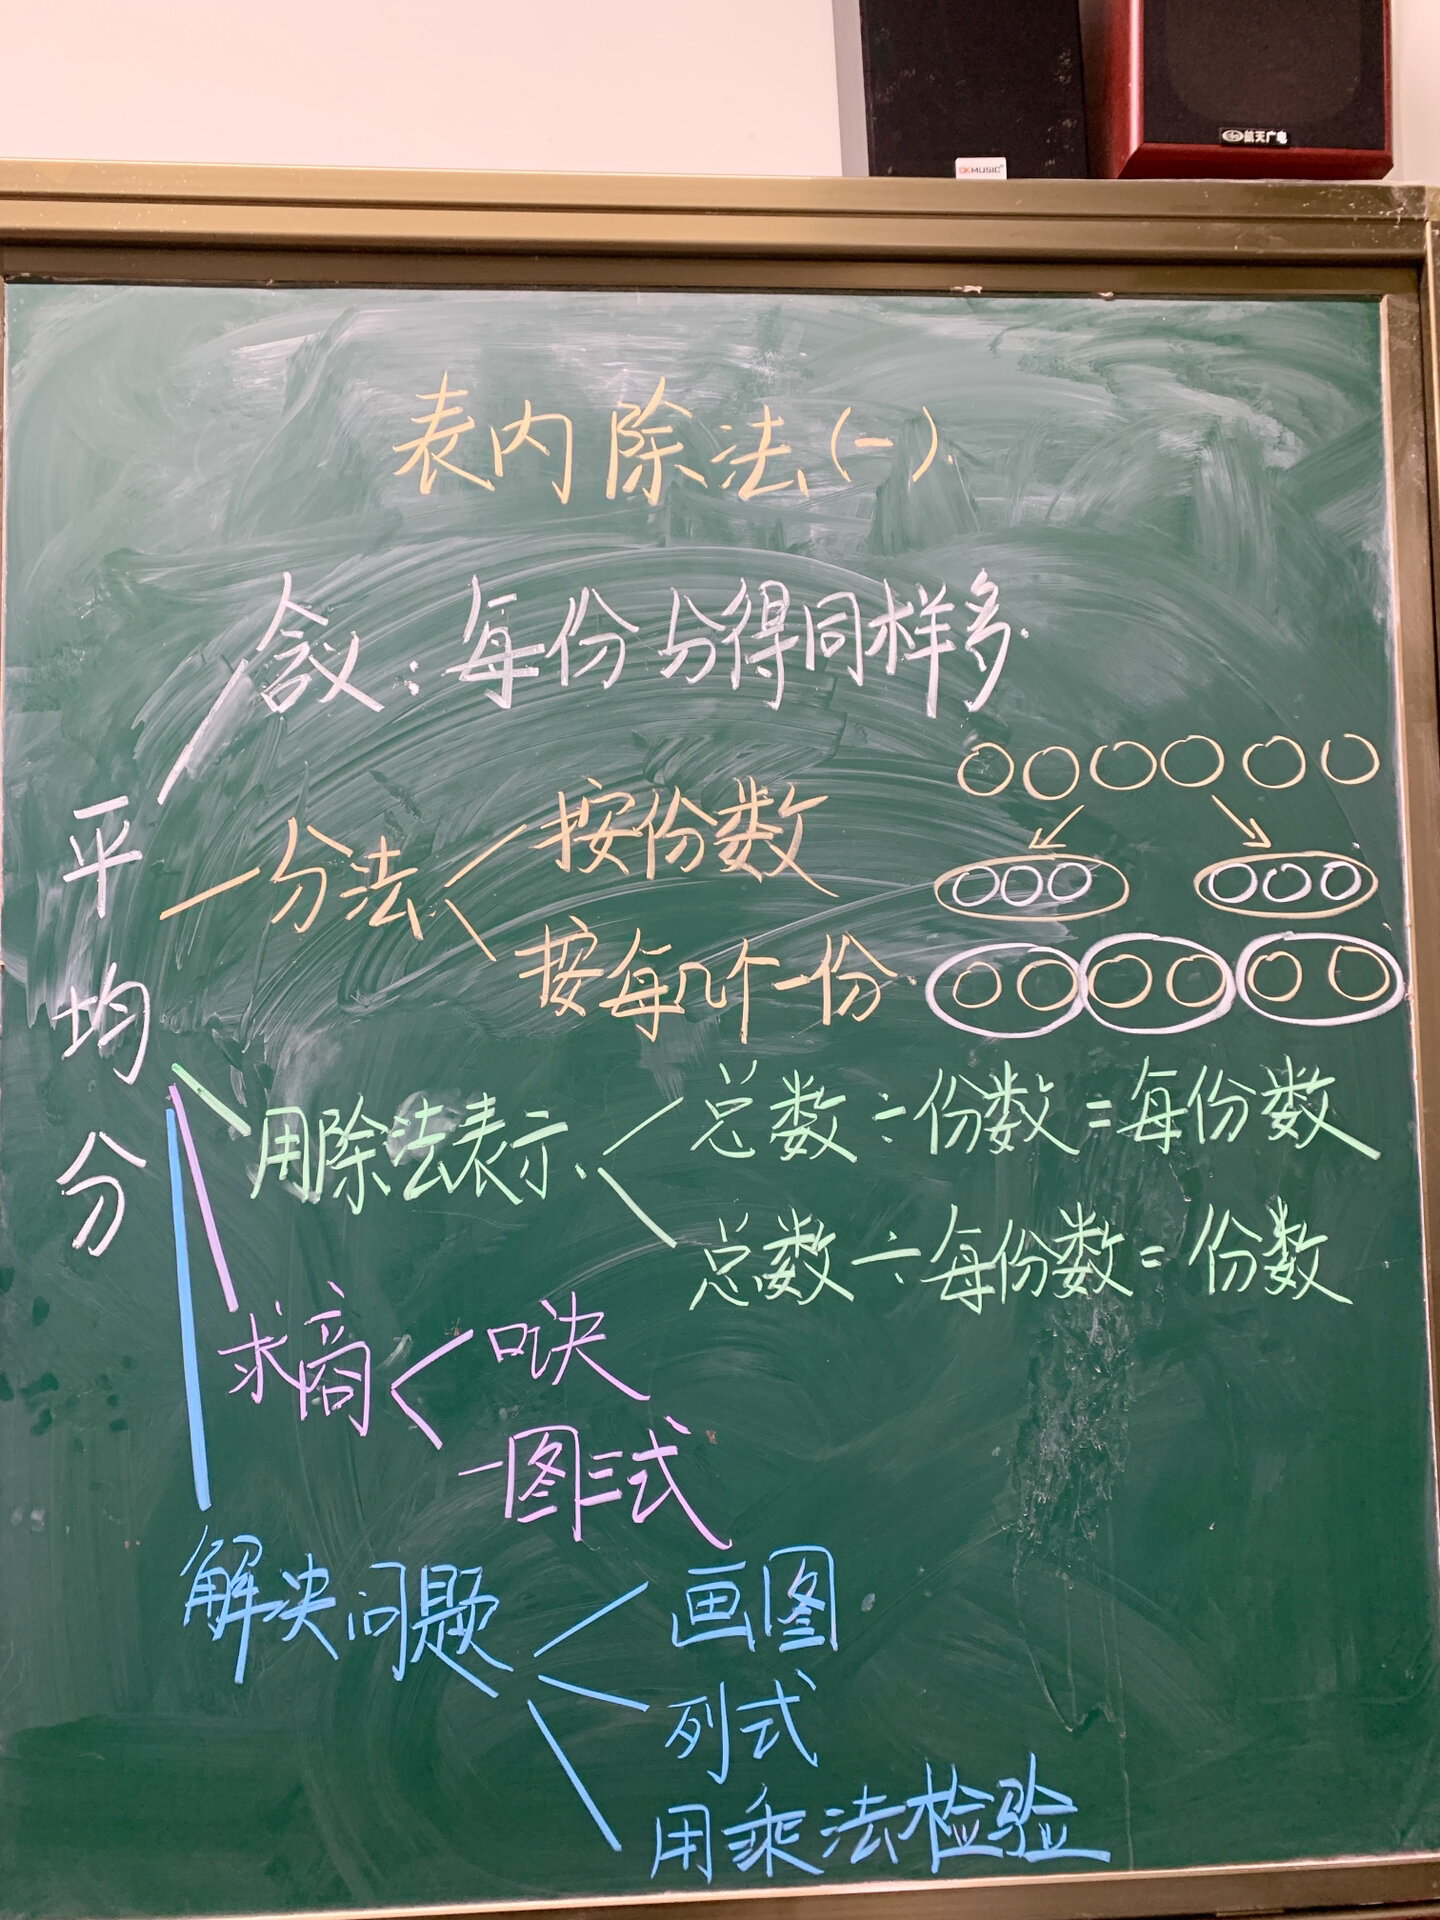 航天广电
OKMUSIC
表内除法(一)
平均分
含义:每份分得同样多.
分法
按份数
按每几个一份.
用除法表示.
总数÷份数=每份数
总数÷每份数=份数
求商
口诀
一图三式
解决问题
画图
列式
用乘法检验